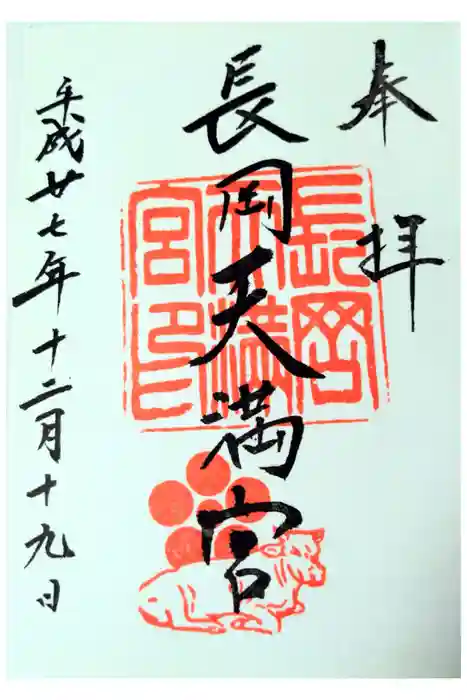 奉拝
長岡天満宮
長岡天満宮印
平成廿七年十二月十九日